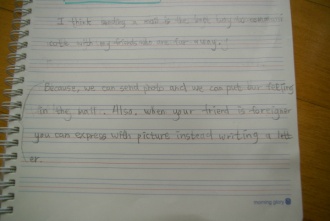 I think sending a mail is the best way to
with my friends who are far away.
Because, we can send photo and we can put our feelings
in the mail. Also, when your friend is foreigner
you can express with picture instead writing a lett
er.
morning glory